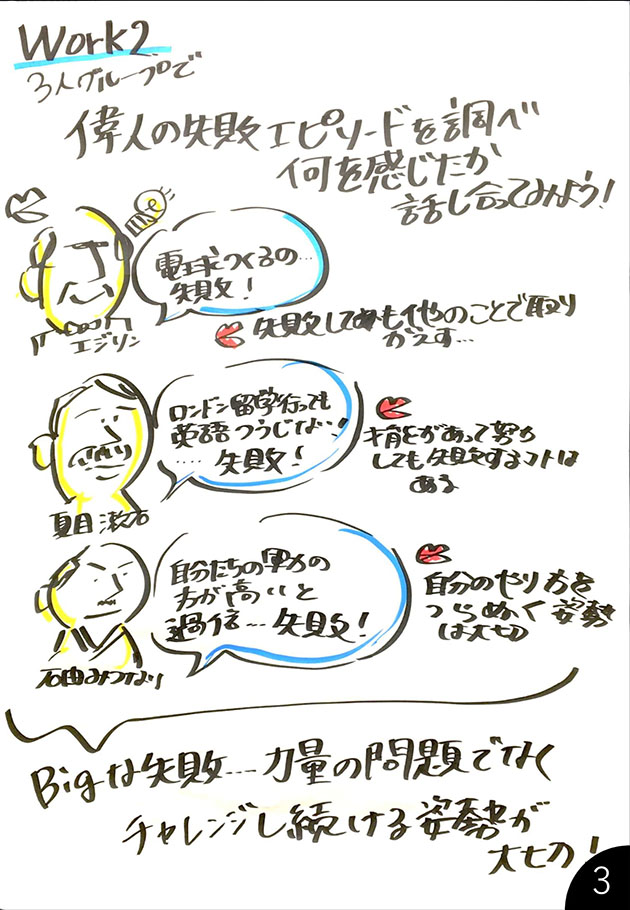 Work2
3人グループで
偉人の失敗エピソードを調べ
何を感じたか
話し合ってみよう!
電球つくるの…
失敗!
エジソン
失敗しても他のことで取り
かえす…
ロンドン留学行っても
英語つうじない!
… 失敗!
夏目漱石
才能があって努力
しても失敗するコトは
ある
自分たちの軍力の
方が高いと
過信…失敗!
石田みつなり
自分のやり方を
つらぬく姿勢
は大切
Bigな失敗…力量の問題でなく
チャレンジし続ける姿勢が
大切!
3